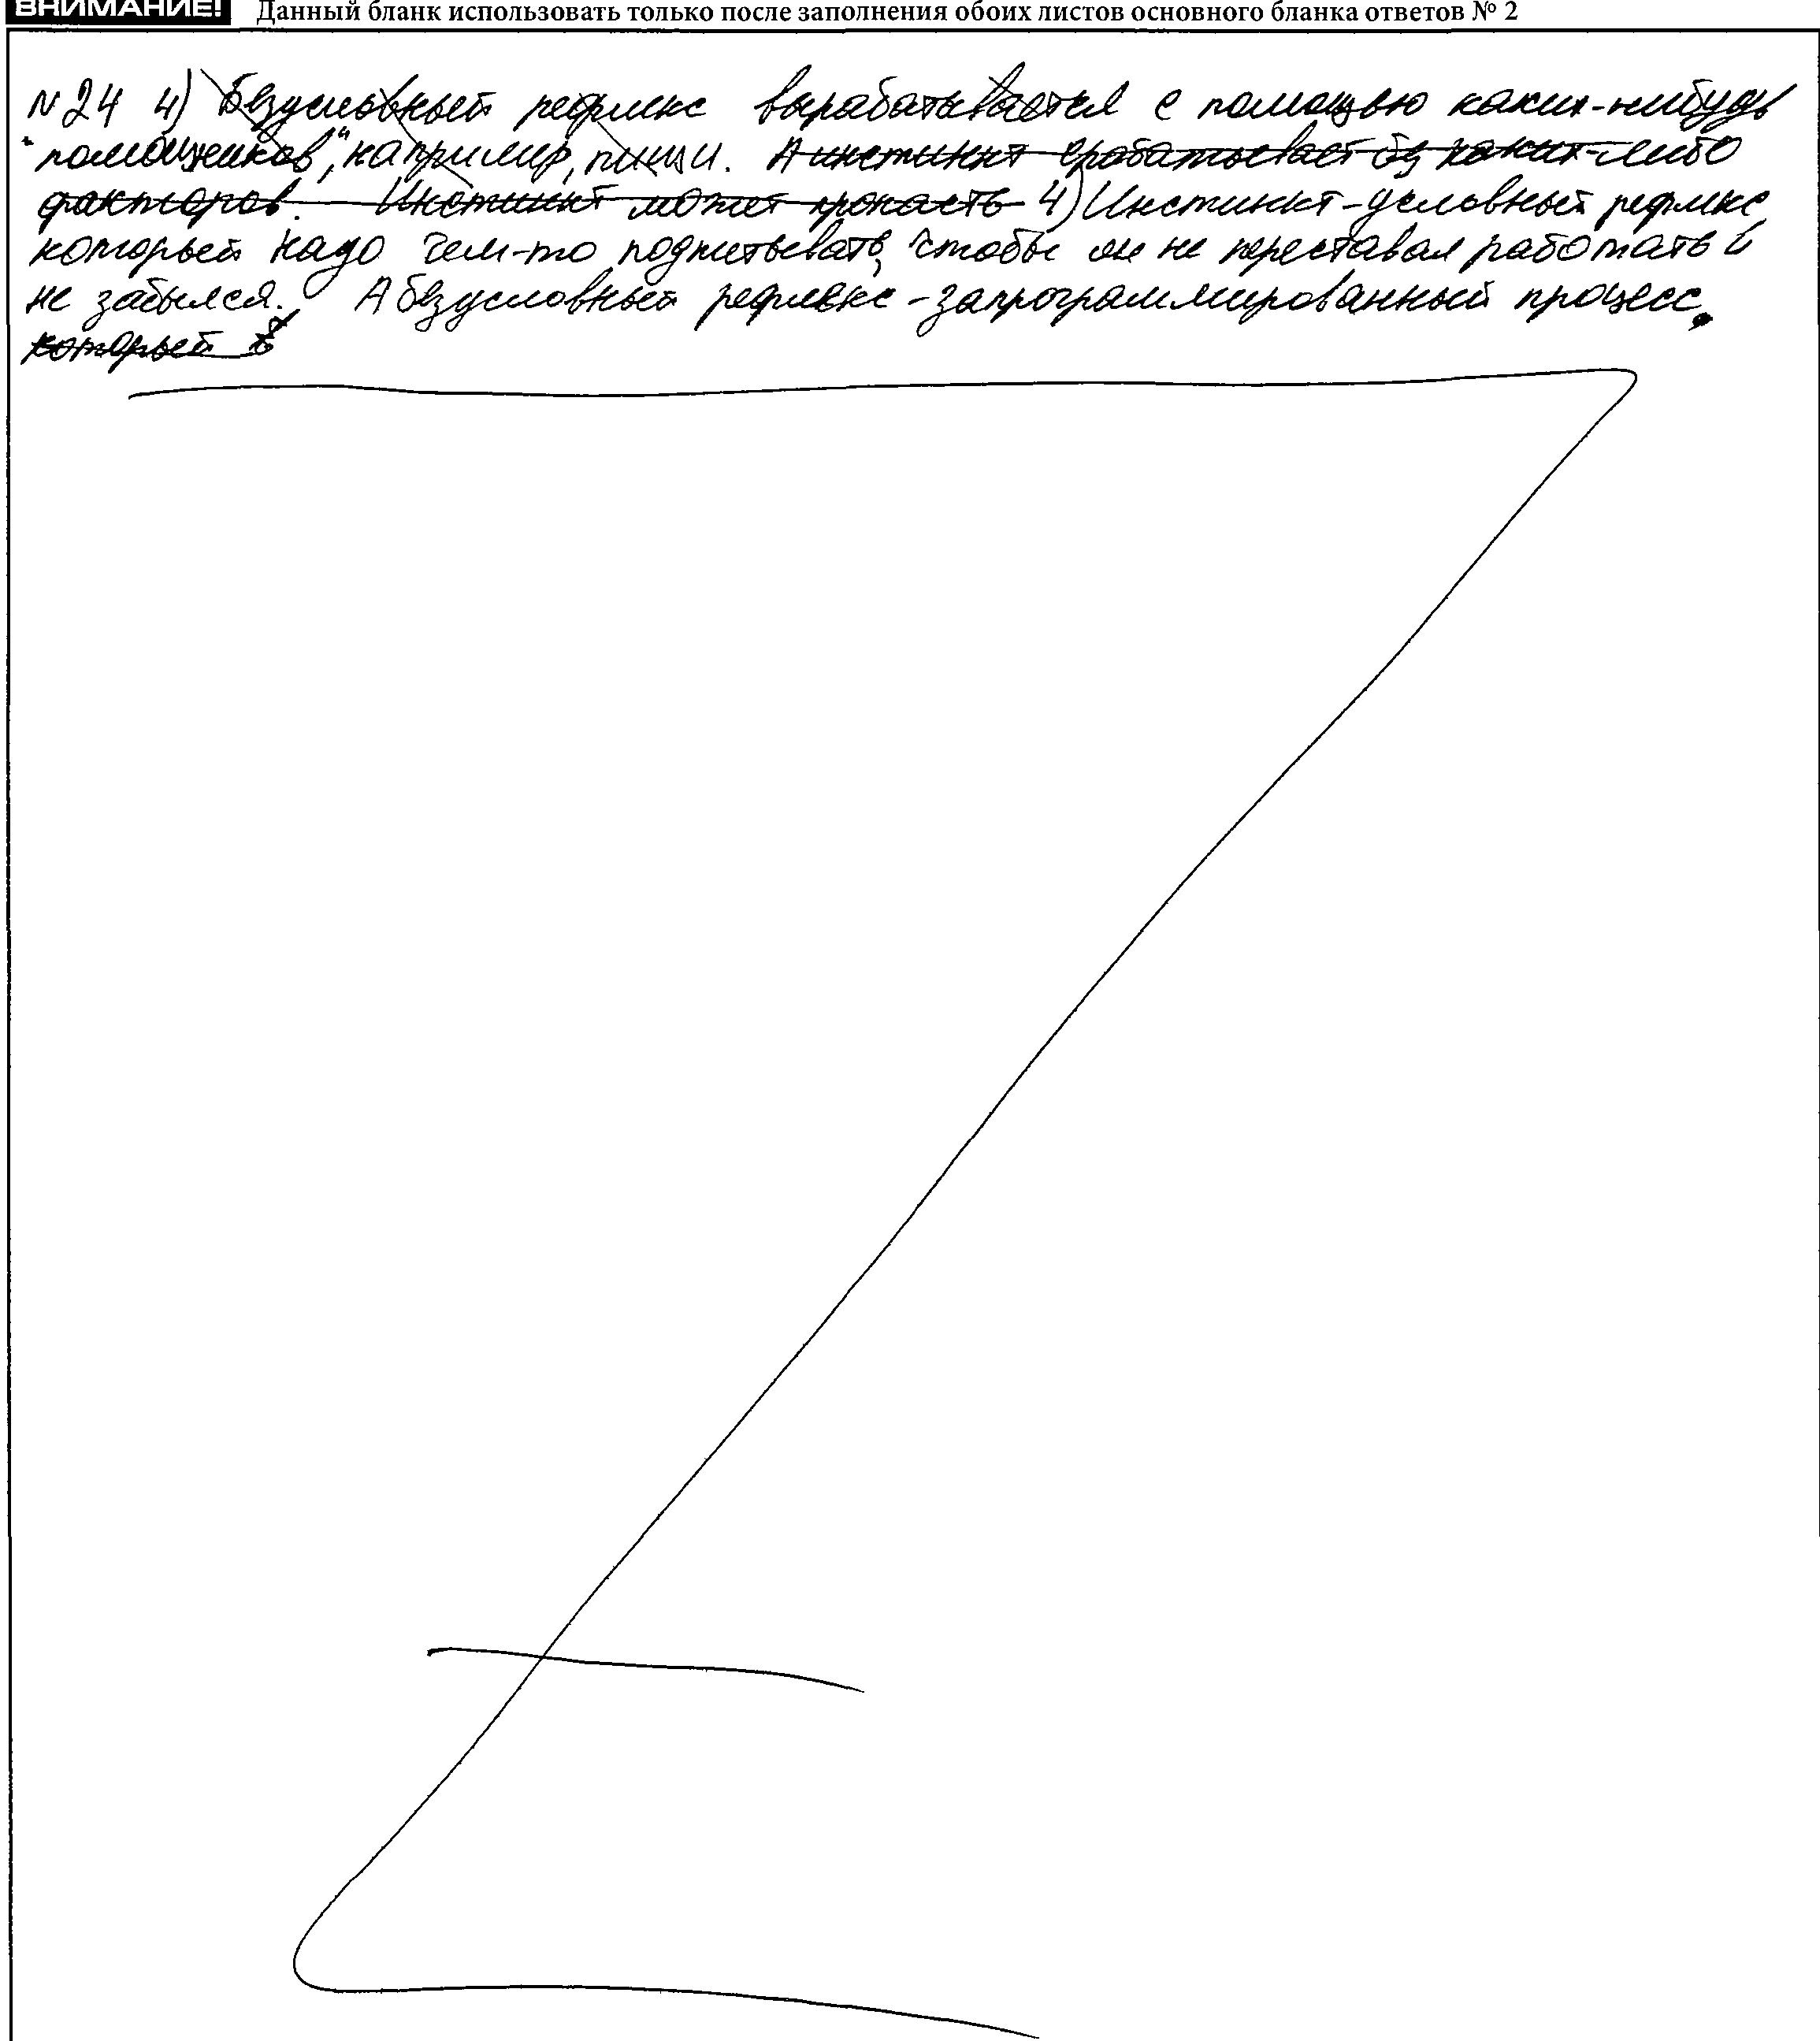 ВНИМАНИЕ! Данный бланк использовать только после заполнения обоих листов основного бланка ответов № 2
№24 4) Безусловный рефлекс вырабатывается с помощью каких-нибудь
"помощников", например, пищи. А инстинкт срабатывает без каких-либо
факторов. Инстинкт может пропасть 4) Инстинкт-условный рефлекс,
который надо чем-то подпитывать, чтобы он не переставал работать и
не забылся. А безусловный рефлекс - запрограммированный процесс.
который